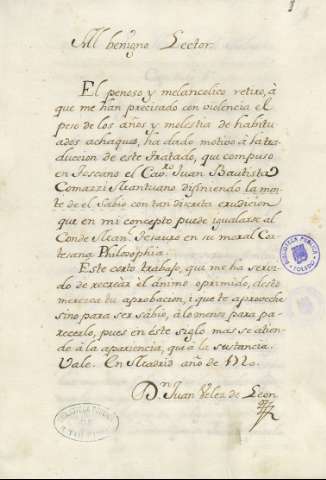 1
Al benigno Lector.
El penoso y melancolico retiro, à
que me hán precisado con violencia el
peso de los años y molestia de habitu
ados achaques, ha dado motivo à la tra
duccion de este tratado, que compuso
en Toscano el Cavro. Juan Bautista
Comazzi Mantuano difiniendo la men
te de el Sabio con tan discreta erudicion
que en mi concepto puede igualarse al
Conde Man. Tesauro en su moral Cor
tesana Philosophia.
Este corto trabajo, que me ha servi
do de recrear el ánimo oprimido, deseo
merezca tu aprobacion, i que te aproveche
sino para ser sábio, à lo menos para pa
recerlo, pues en éste siglo mas se atien
de à la apariencia, que à la sustancia.
Vale. En Madrid año de
Dn. Juan Velez de Leon
BIBLIOTECA PUBLICA
TOLEDO